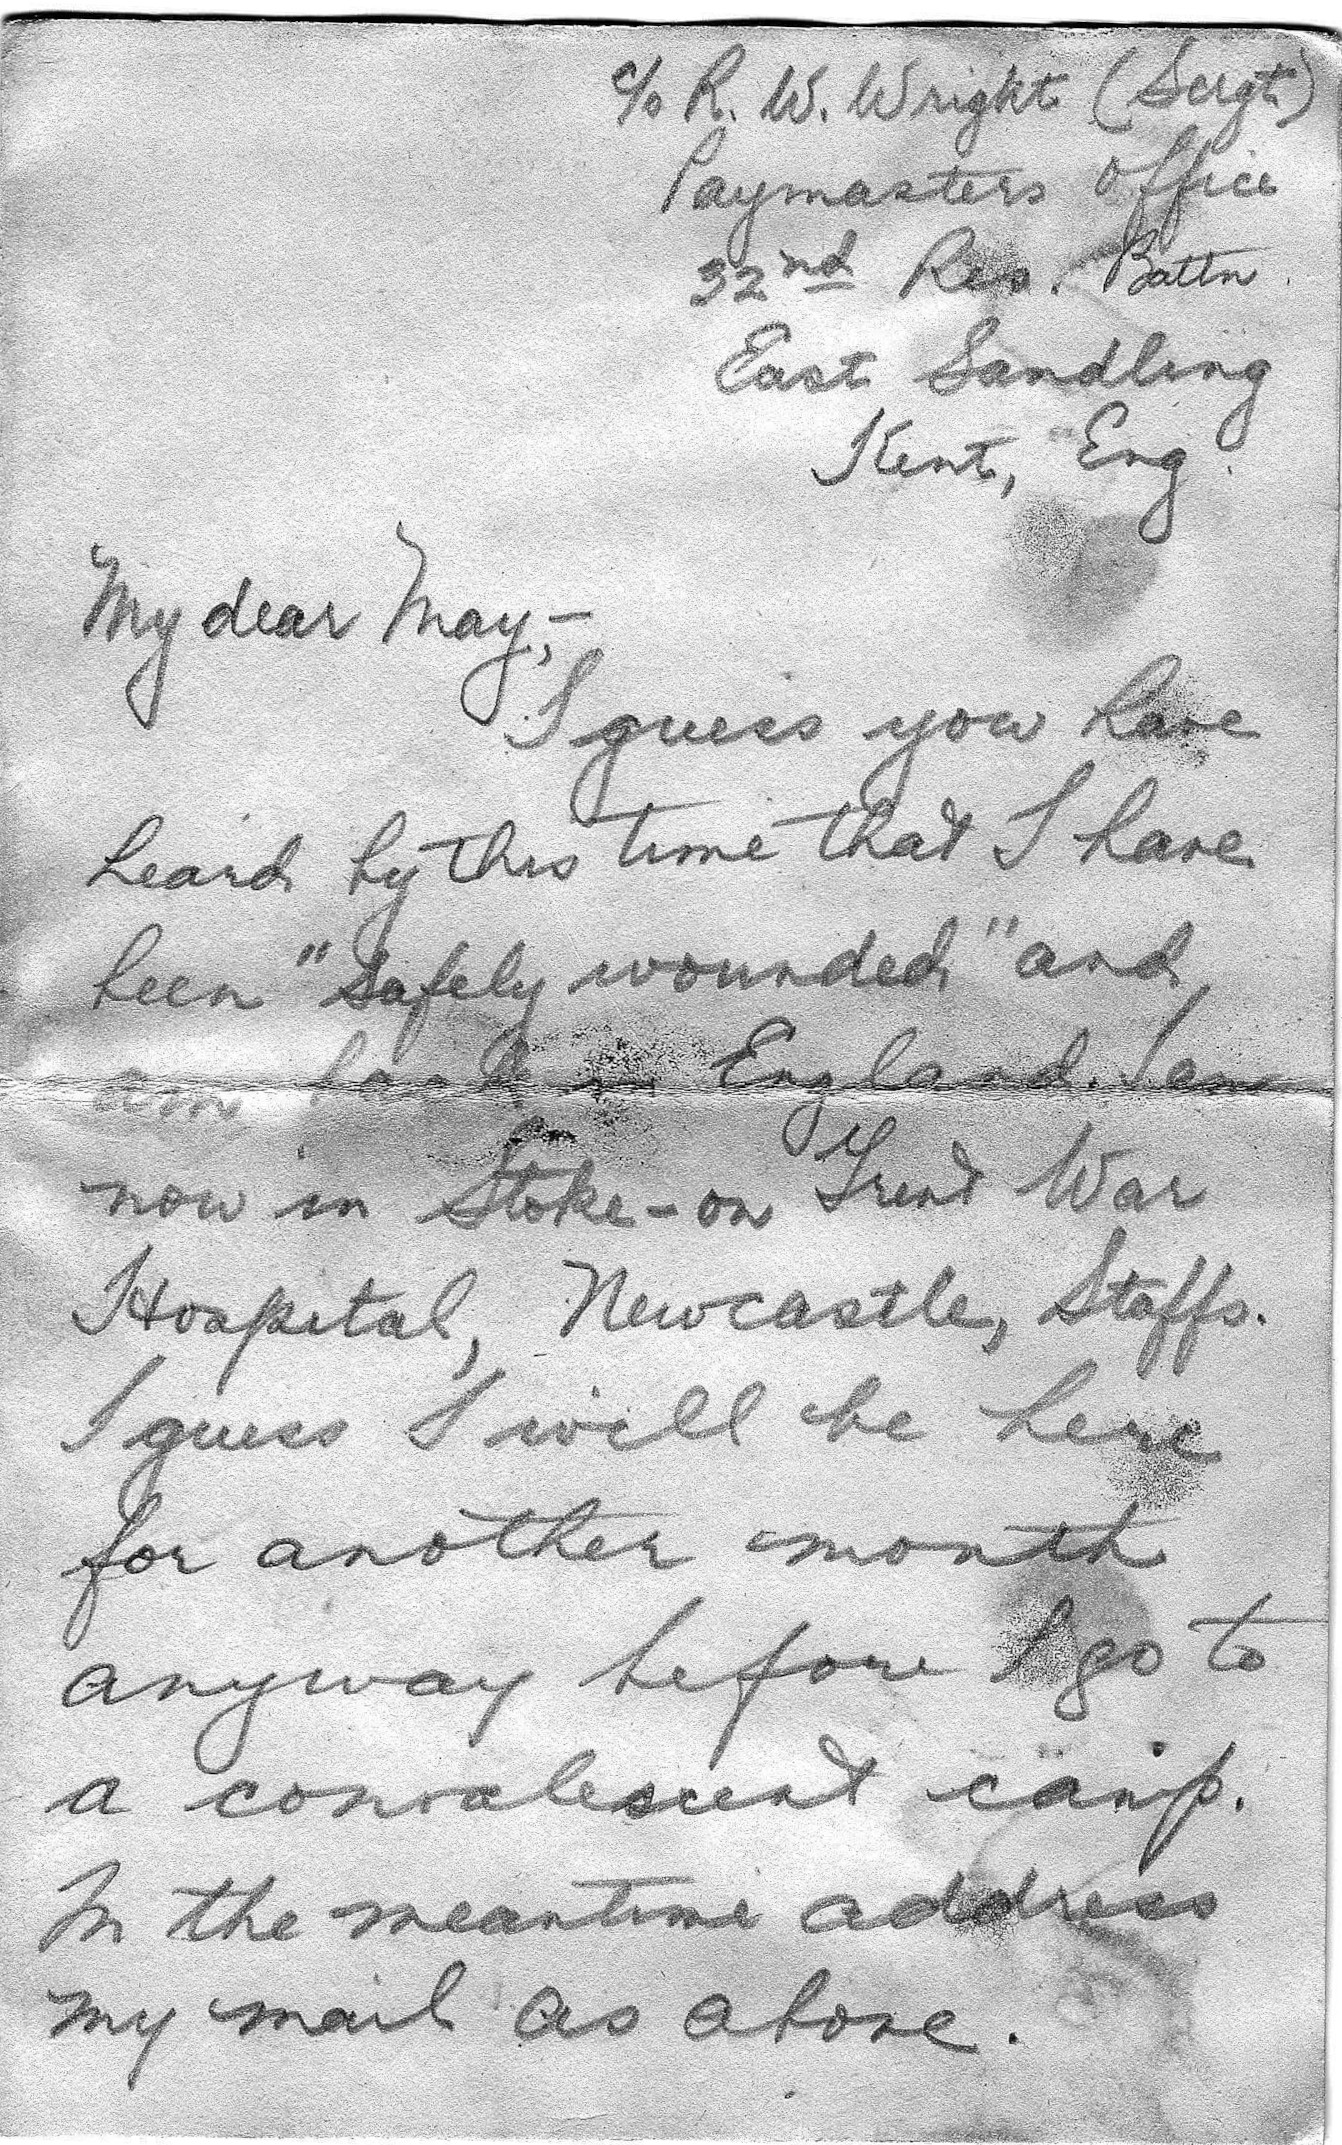 c/o R. W. Wright (Sergt.)
Paymasters Office
32nd Res. Battn.
East Sandling
Kent, Eng.
My dear May,—
I guess you have
heard by this time that I have
been "safely wounded" and
am back in England. I am
now in Stoke-on Trent War
Hospital, Newcastle, Staffs.
I guess I will be here
for another month
anyway before I go to
a convalescent camp.
In the meantime address
my mail as above.